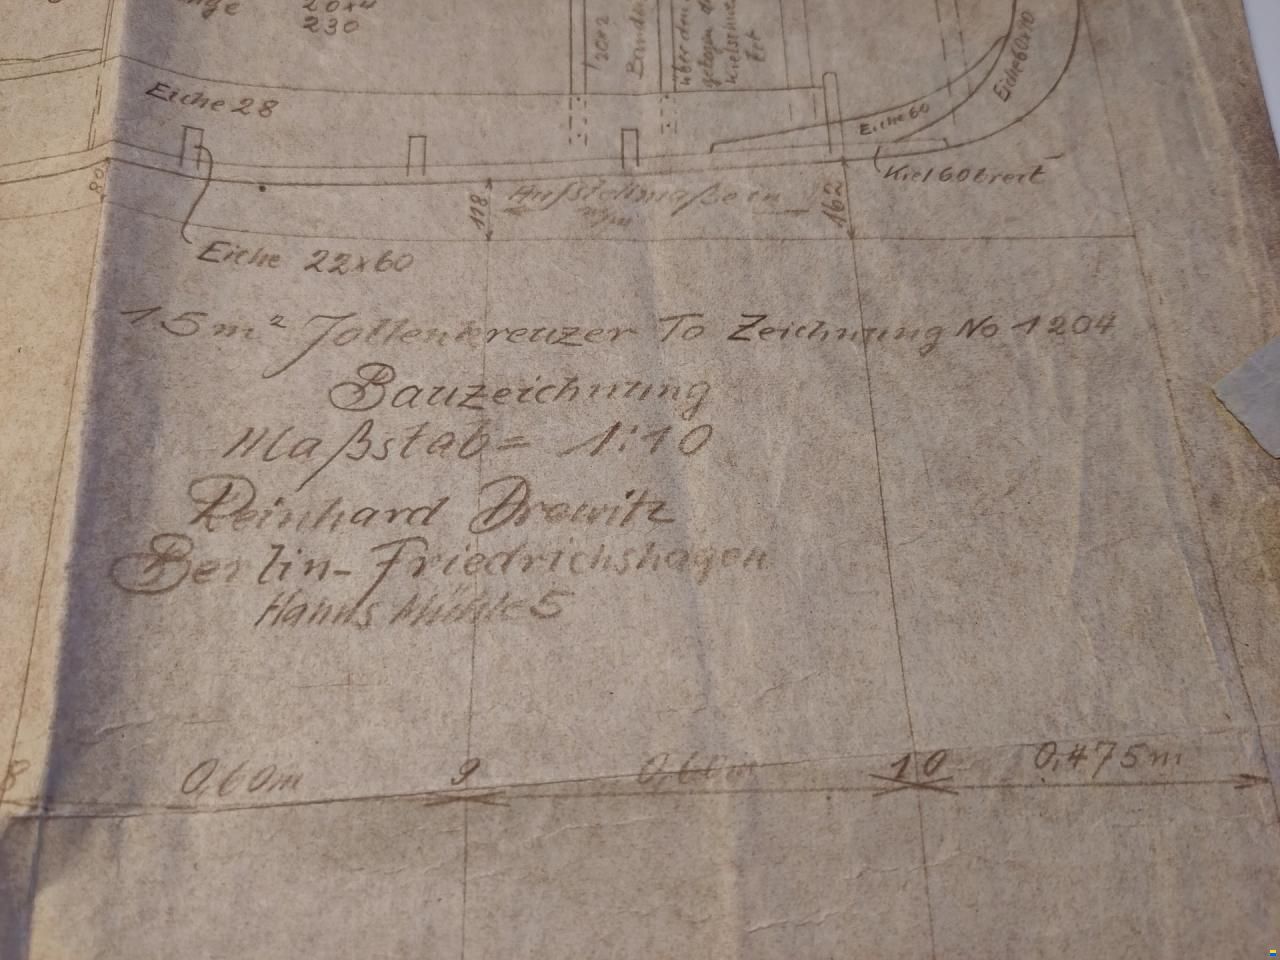 20x4
230
20x2
über dem
gebogen
Kielschwei
Eiche 28
Eiche 60
Eiche 60x70
Kiel 60 breit
80
118
Aufstellmaße in
m/m
162
Eiche 22x60
15m² Jollenkreuzer To Zeichnung No 1204
Bauzeichnung
Maßstab = 1:10
Reinhard Drewitz
Berlin-Friedrichshagen
Hanns Mühle 5
8
0,60m
9
0,60m
10
0,475m